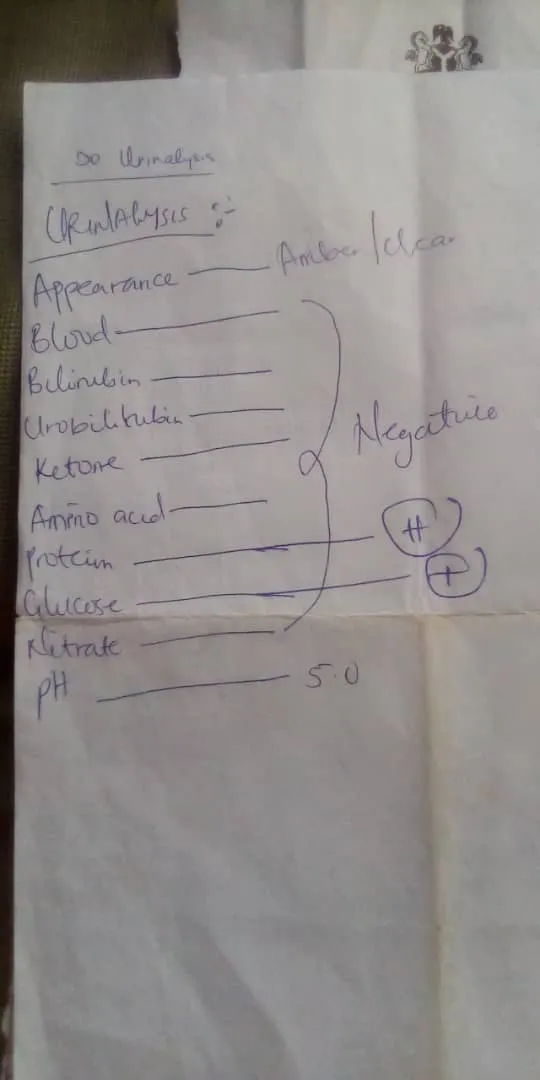 Do Urinalysis
URINAlysis :-
Appearance — Amber/clear
Blood —
Bilirubin —
Urobilirubin —
Ketone — Negative
Amino acid —
Protein — (++)
Glucose — (+)
Nitrate —
pH — 5.0